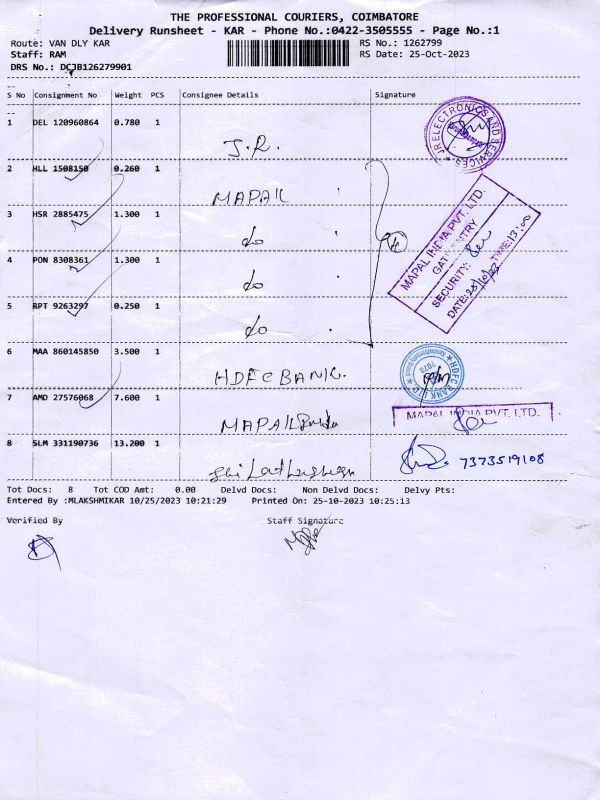 THE PROFESSIONAL COURIERS, COIMBATORE
Delivery Runsheet - KAR - Phone No.:0422-3505555 - Page No.:1
Route: VAN DLY KAR RS No.: 1262799
Staff: RAM RS Date: 25-Oct-2023
DRS No.: DCJB126279901
S No Consignment No Weight PCS Consignee Details Signature
1 DEL 120960864 0.780 1 J.R. JR ELECTRONICS AND SERVICES
2 HLL 1508150 0.260 1 MAPAL
3 HSR 2885475 1.300 1 do
4 PON 8308361 1.300 1 do
5 RPT 9263297 0.250 1 do
MAPAL INDIA PVT. LTD.
GATE ENTRY
SECURITY:
DATE: 25/10/23 TIME: 13:00
6 MAA 860145850 3.500 1 HDFC BANK. HDFC BANK LTD
7 AMD 27576068 7.600 1 MAPAL MAPAL INDIA PVT. LTD.
8 SLM 331190736 13.200 1 7373519108
Tot Docs: 8 Tot COD Amt: 0.00 Delvd Docs: Non Delvd Docs: Delvy Pts:
Entered By :MLAKSHMIKAR 10/25/2023 10:21:29 Printed On: 25-10-2023 10:25:13
Verified By Staff Signature